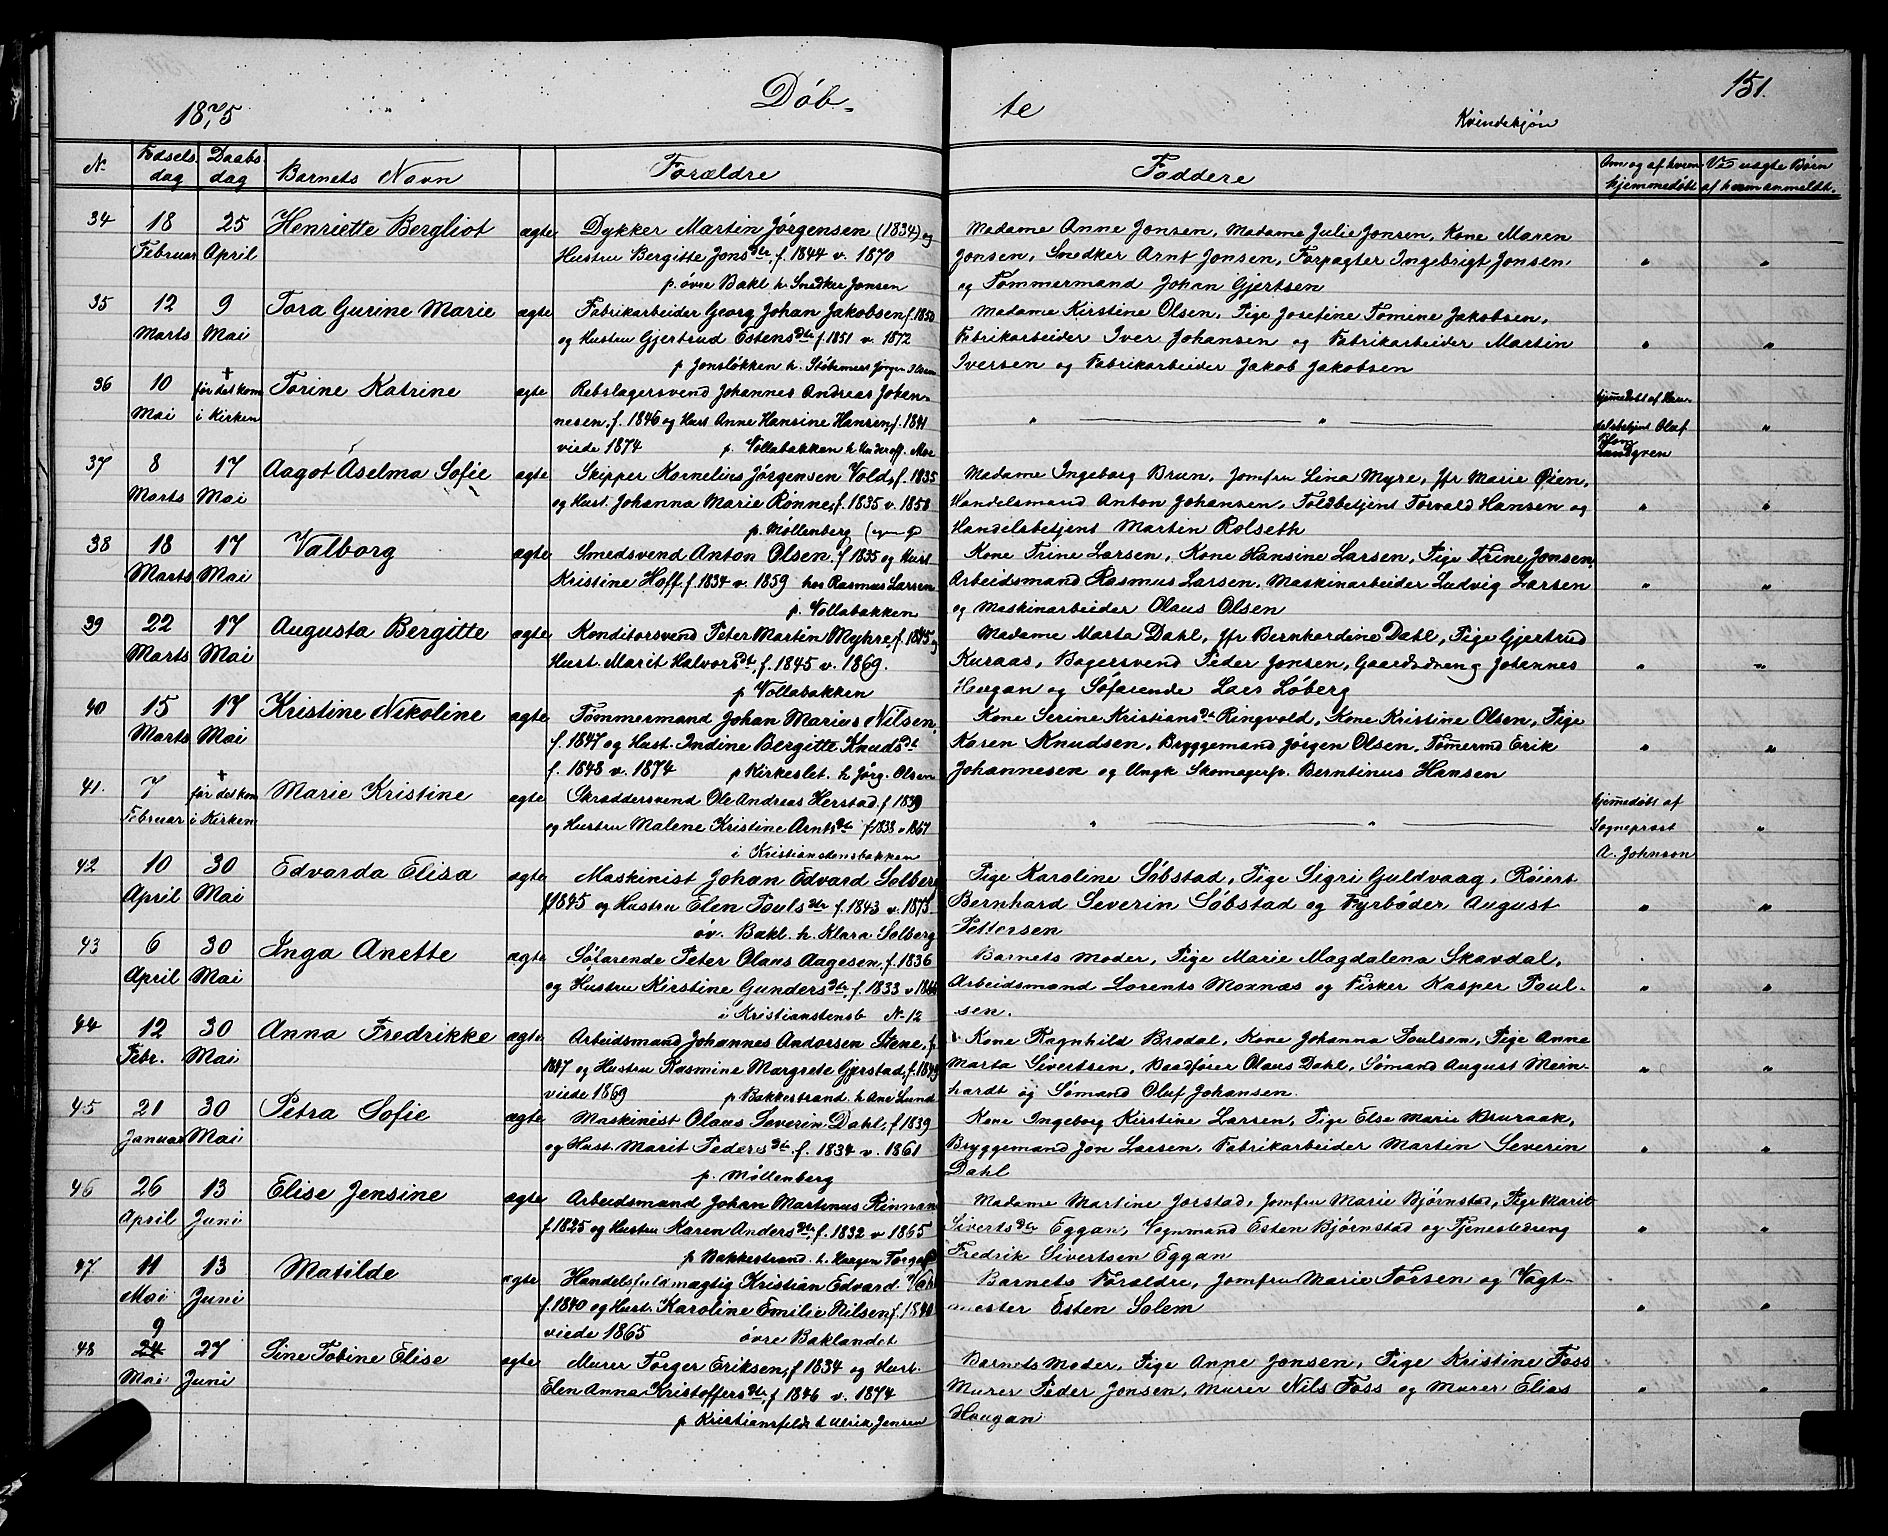 1875 Döb- te 151.
Kvindekjøn
N. Fødsels dag Daabs dag Barnets Navn Forældre Faddere Om og af hvem hjemmedøbt Ved uægte Børn af hvem anmeldt.
34 18 Februar 25 April Henriette Bergliot ægte Dykker Martin Jörgensen (1834) og
Hustru Bergitte Jonsdtr, f. 1844 v. 1870
p. övre Bakl h. Snedker Jonsen
Madame Anne Jonsen, Madame Julie Jonsen, Kone Maren
Jonsen, Snedker Arnt Jonsen, Forpagter Ingebrigt Jonsen
og Tømmermand Johan Gjertsen " "
35 12 Marts 9 Mai Tora Gurine Marie ægte Fabrikarbeider Georg Johan Jakobsen f. 1850
og Hustru Gjertrud Estensdtr f. 1851 v. 1872
p Jonsløkken h. Støbemest Jörgen
Madame Kirstine Olsen, Pige Josefine Tomine Jakobsen,
Fabrikarbeider Iver Johansen og Fabrikarbeider Martin
Iversen og Fabrikarbeider Jakob Jakobsen " "
36 10 Mai + før det kom i Kirken Torine Katrine ægte Rebslagersvend Johannes Andreas Johan-
nesen, f. 1846 og Hust Anne Hansine Hansen, f. 1841
viede 1874 p. Vollabakken h Underoff. Moe
" " hjemmedøbt af Han-
delsbetjent Olaf
Landgren "
37 8 Marts 17 Mai Aagot Aselma Sofie ægte Skipper Kornelius Jörgensen Vold, f. 1835
og Hust. Johanna Marie Rønne, f. 1835 v. 1858
p. Møllenberg (egen G
Madame Ingeborg Brun, Jomfru Lina Myre, Jfr Marie Øien,
Handelsmand Anton Johansen, Toldbetjent Torvald Hansen og
Handelsbetjent Martin Rolseth " "
38 18 Marts 17 Mai Valborg ægte Smedsvend Anton Olsen, f 1835 og Hust
Kristine Hoff, f. 1834 v. 1859 hos Rasmus Larsen
p. Vollabakken
Kone Trine Larsen, Kone Hansine Larsen, Pige Trine Jonsen
Arbeidsmand Rasmus Larsen, Maskinarbeider Ludvig Larsen
og Maskinarbeider Olaus Olsen " "
39 22 Marts 17 Mai Augusta Bergitte ægte Konditorsvend Peter Martin Myhre, f. 1845 og
Hust. Marit Halvorsdt, f. 1845 v. 1869.
p Vollabakken
Madame Marta Dahl, Jfr Bernhardine Dahl, Pige Gjertrud
Kuraas, Bagersvend Peder Jonsen, Gaardsdreng Johannes
Haugan og Söfarende Lars Löberg " "
40 15 Marts 17 Mai Kristine Nikoline ægte Tømmermand Johan Marius Nilsen,
f. 1847 og Hust. Indine Bergitte Knudsdt
f. 1848 v. 1874 p Kirkeslet. h Jörg. Olsen
Kone Serine Kristiansdt Ringvold, Kone Kristine Olsen, Pige
Karen Knudsen, Bryggemand Jörgen Olsen, Tømermd Erik
Johannesen og Ungk Skomagersv. Berntinus Hansen " "
41. 7 Februar + før det kom i Kirken Marie Kristine ægte Skræddersvend Ole Andreas Herstad. f 1839
og Hustru Malene Kristine Arntsdtr f 1838 v 1867
i Kristianstensbakken
" " hjemmedøbt af
Sogneprest
A. Johnson "
42 10 April 30 Mai Edvarda Elisa ægte Maskinist Johan Edvard Solberg
f 1845 og Hustru Elen Poulsdtr f. 1843 v. 1873
öv. Bakl. h. Klara Solberg
Pige Karoline Söbstad, Pige Sigri Guldvaag, Röiert
Bernhard Severin Söbstad og Fyrbøder August
Pettersen " "
43 6 April 30 Mai Inga Anette ægte Söfarende Peter Olaus Aagesen, f. 1836
og Hustru Kirstine Gundersdtr, f. 1833 v
i Kristianstensb No 12
Barnets Moder, Pige Marie Magdalena Skavdal,
Arbeidsmand Lorents Moxnæs og Fisker Kasper Poul-
sen. " "
44 12 Febr. 30 Mai Anna Fredrikke ægte Arbeidsmand Johannes Andorsen Stene, f.
1847 og Hustru Rasmine Margrete Gjerstad, f. 1849
viede 1869 p. Bakkestrand h Ane Lund
Kone Ragnhild Brodal, Kone Johanna Poulsen, Pige Anne
Marta Sivertsen, Baadfører Olaus Dahl, Sømand August Mein-
hardt og Sømand Oluf Johansen. " "
45 21 Januar 30 Mai Petra Sofie ægte Maskinist Olaus Severin Dahl, f 1839
og Hust. Marit Pedersdt f. 1834 v. 1861
p. Møllenberg
Kone Ingeborg Kirstine Larsen, Pige Else Marie Bruraak,
Bryggemand Jon Larsen, Fabrikarbeider Martin Severin
Dahl " "
46 26 April 13 Juni Elise Jensine ægte Arbeidsmand Johan Martinus Rinnan
f 1825 og Hustru Karen Andersdtr, f. 1832 v 1865
p Bakkestrand. h. Haagen
Madame Martine Jorstad, Jomfru Marie Björnstad, Pige Marit
Sivertsdtr Eggan, Vognmand Esten Björnstad og Tjenestedreng
Fredrik Sivertsen Eggan " "
47 11 Mai 13 Juni Matilde ægte Handelsfuldmægtig Kristian Edvard
f. 1840 og Hust. Karoline Emilie Nilsen, f. 1840
viede 1865 övre Baklandet
Barnets Forældre, Jomfru Marie Torsen og Vogt-
mester Esten Solem " "
48 9 24 Mai 27 Juni Sine Tobine Elise ægte Murer Torger Eriksen, f 1834 og Hust.
Elen Anna Kristoffersdtr, f 1846 v. 1874
p Kristiansfeldt h Ulrik Jensen
Barnets Moder, Pige Anne Jonsen, Pige Kristine Foss
Murer Peder Jonsen, Murer Nils Foss og Murer Elias
Haugan " "